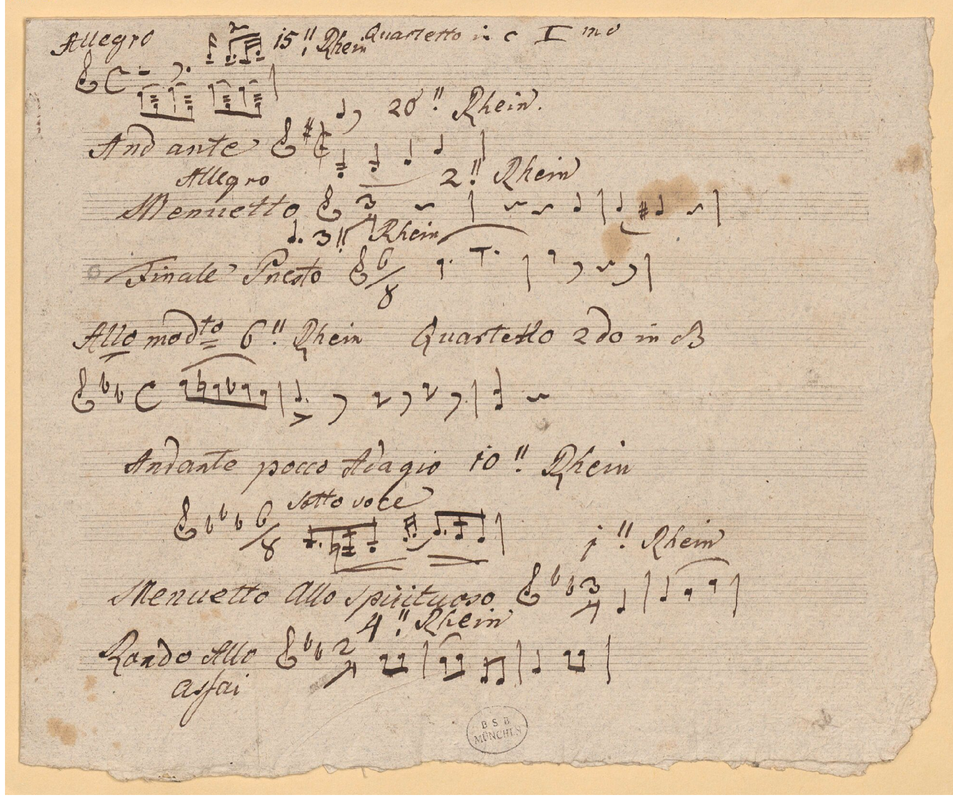 Allegro 15" Rhein Quartetto in C I mo
20" Rhein.
Andante
Allegro 2" Rhein
Menuetto 3
3" Rhein
Finale Presto 6/8
Allo modto 6" Rhein Quartetto 2do in B
Andante pocco Adagio 10" Rhein
sotto voce
6/8
1" Rhein
Menuetto Allo spirituoso 3/4
4" Rhein
Rondo Allo 2/4
assai
BSB
MÜNCHEN